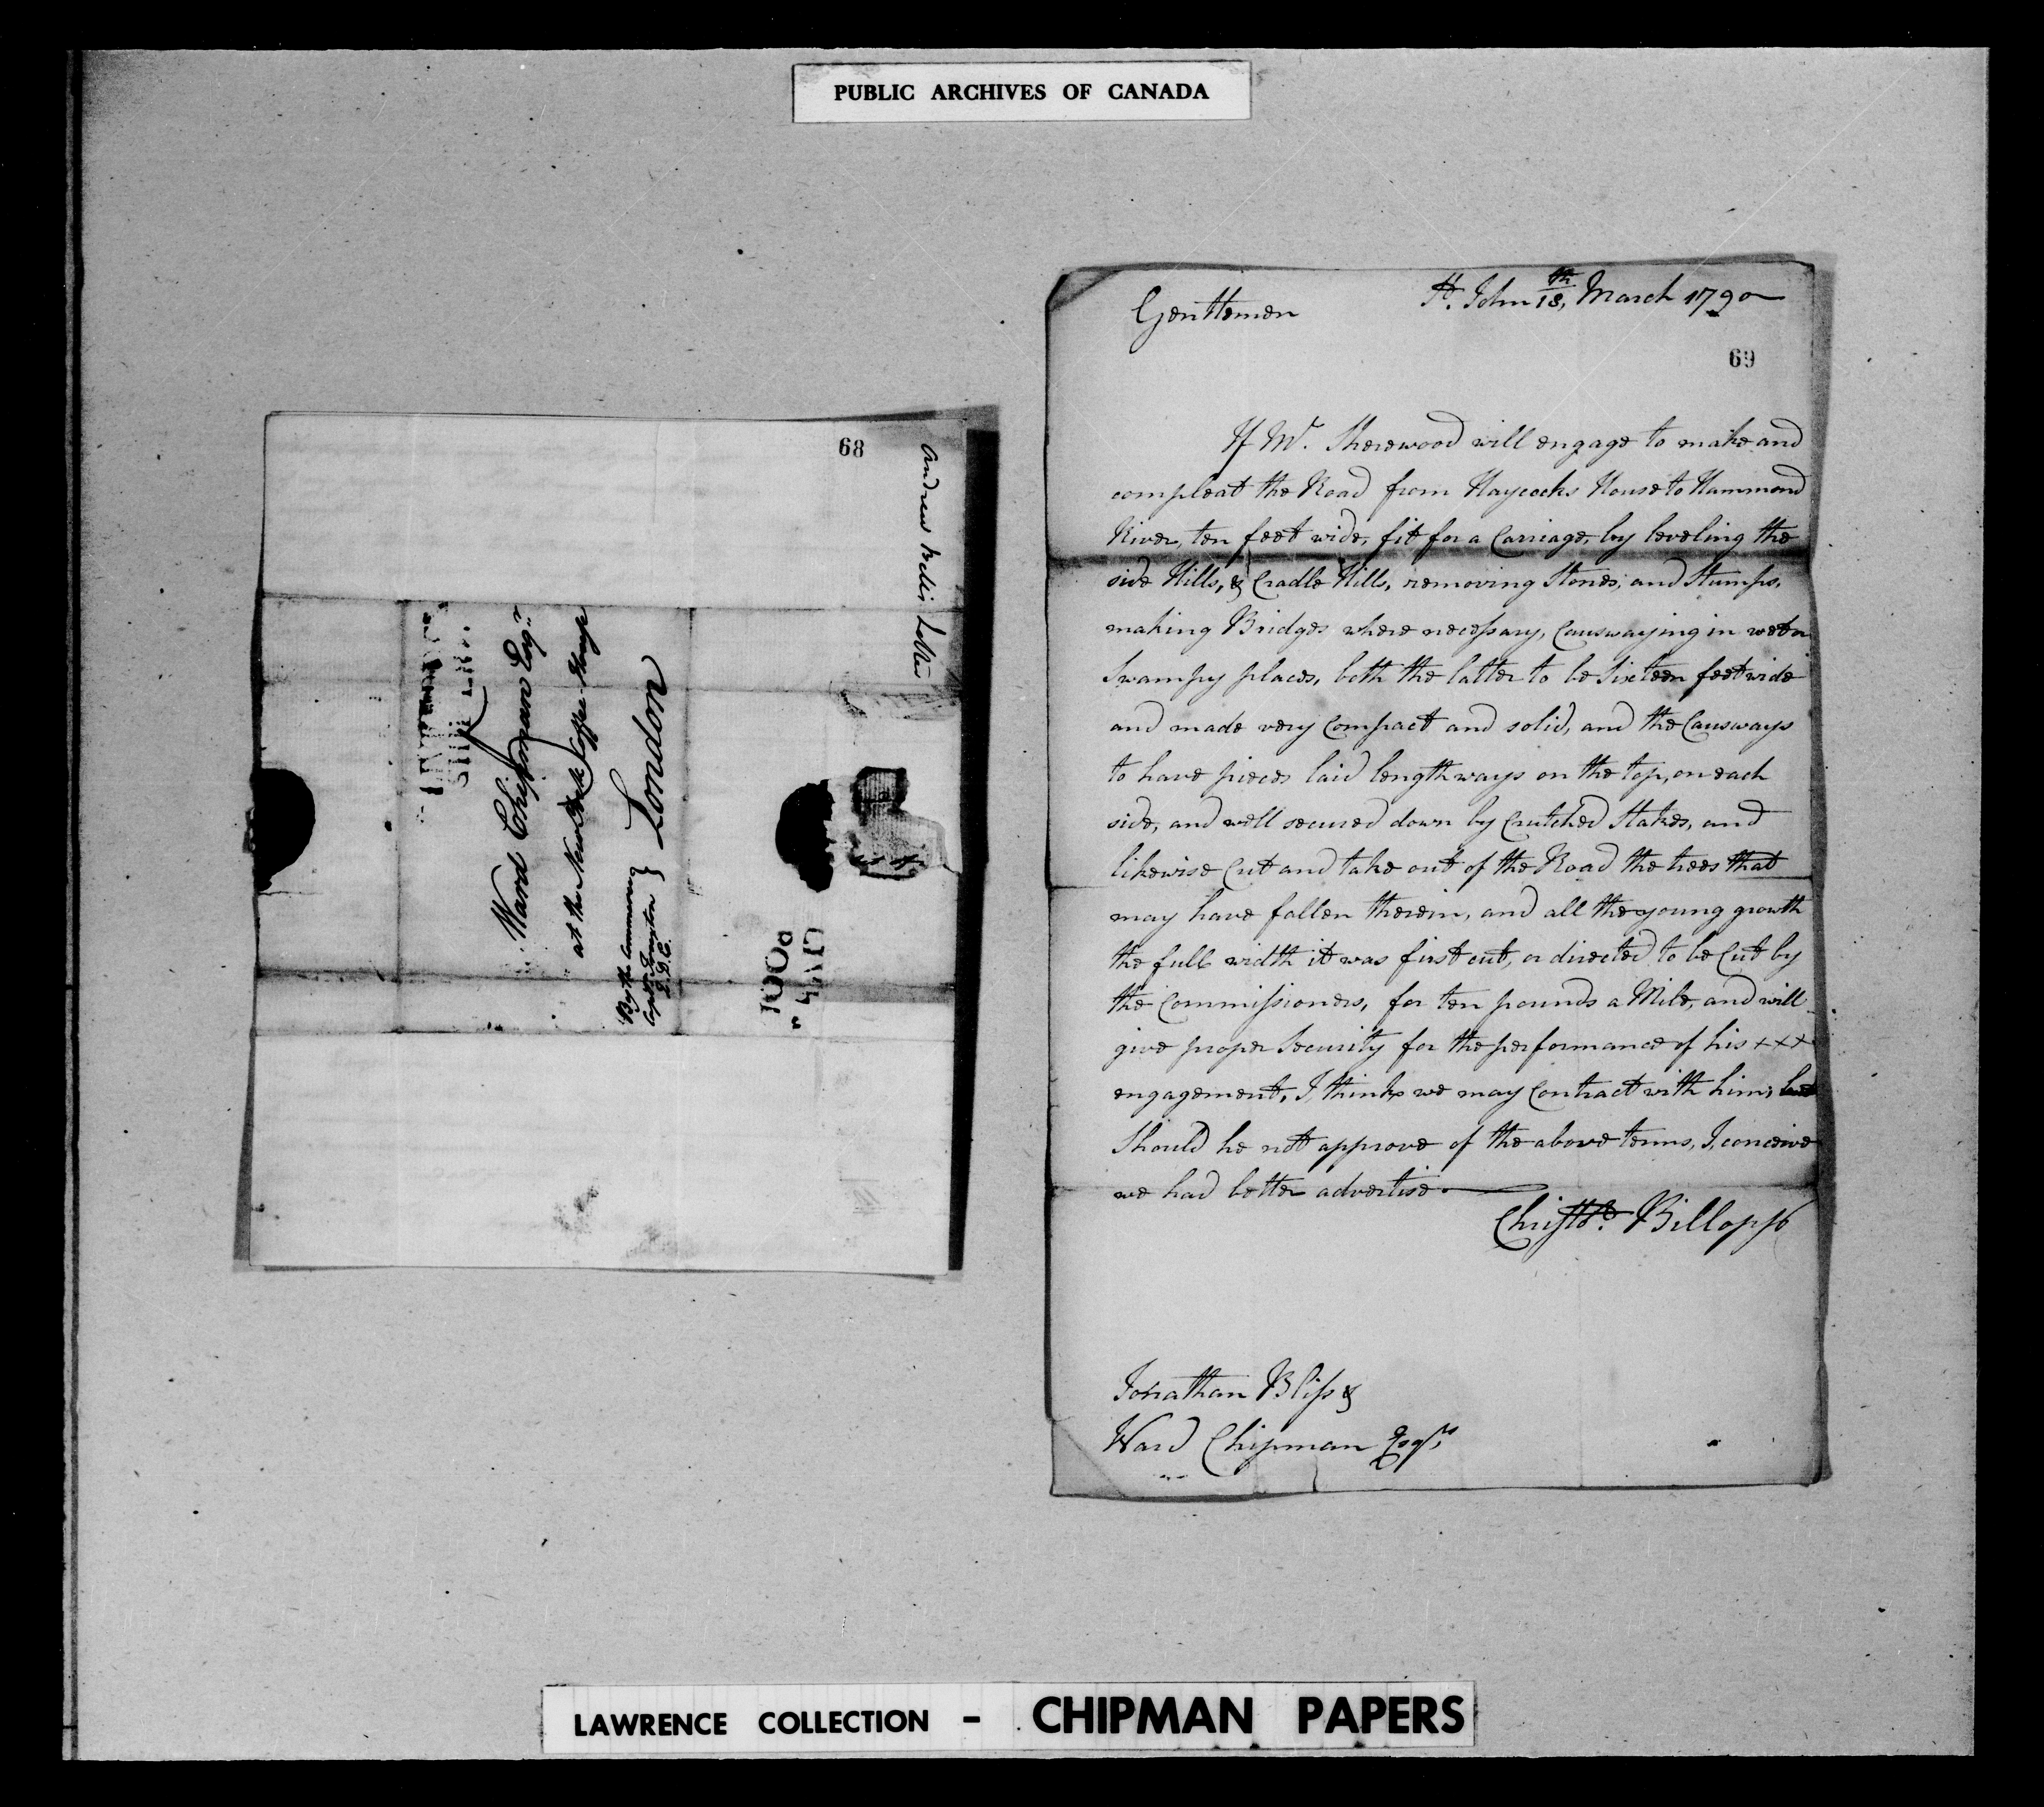 PUBLIC ARCHIVES OF CANADA
68
Andrew Kellis Letter
Ward Chipman Esqr.
at the New York Coffee-House
London
By the Commerce
Capt.
D.G.C.
St. John 18,th March 1790
Gentlemen
69
If Mr. Sherewood will engage to make and
compleat the Road from Haycocks House to Hammond
River, ten feet wide, fit for a Carriage, by leveling the
side Hills, & Cradle Hills, removing Stones, and Stumps,
making Bridges where necessary, Causwaying in wet or
Swampy places, both the latter to be Sixteen feet wide
and made very Compact and solid, and the Causways
to have pieces laid lengthways on the top, on each
side, and well secured down by Crutched Stakes, and
likewise Cut and take out of the Road the trees that
may have fallen therein, and all the young growth
the full width it was first cut, or directed to be Cut by
the Commissioners, for ten pounds a Mile, and will
give proper Security for the performance of his xxx
engagement, I think we may Contract with him; but
Should he not approve of the above terms, I, conceive
we had better advertise.
Christr. Billopp
Jonathan Bliss &
Ward Chipman Esqrs
LAWRENCE COLLECTION - CHIPMAN PAPERS